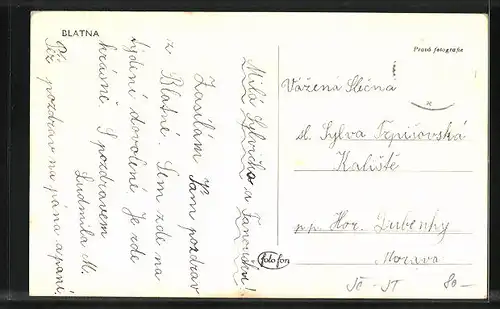 BLATNA
Pravá fotografie
Milá Sylvičko a Janoušku!
Zasílám Vám pozdrav
z Blatné. Jsem zde na
týdení dovolené je zde
krásně. S pozdravem
Ludmila M.
Též pozdrav na pána a paní.
Vážená Slečna
sl. Sylva Trpišovská
Kaliště
p.p. Hor. Dubenky
Morava
80-
foto fon